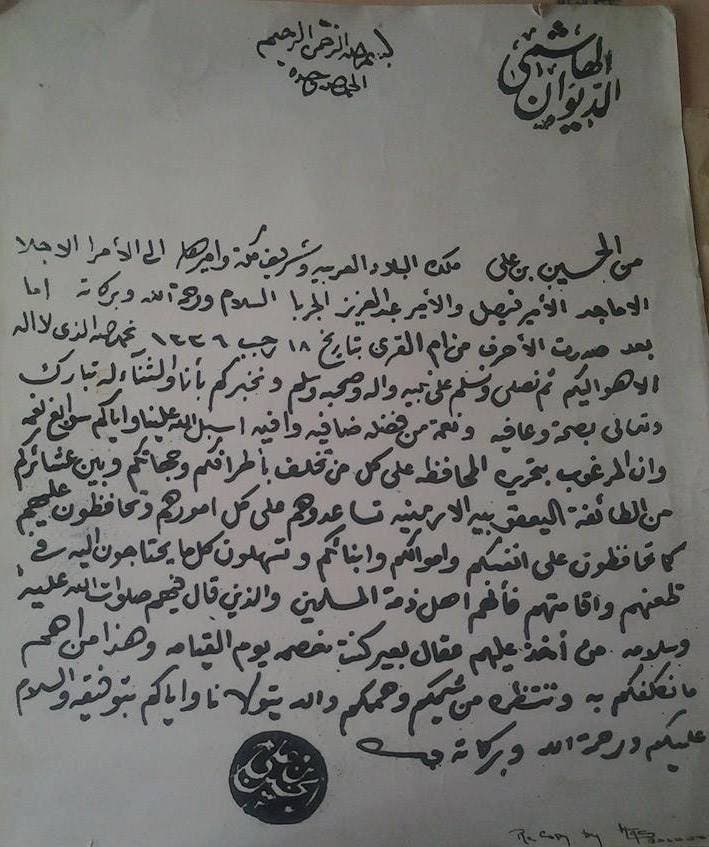 بسم الله الرحمن الرحيم
الحمد لله وحده
الديوان الهاشمي
من الحسين بن علي ملك البلاد العربيه وشريف مكة واميرها الى الأمرا الاجلا
الاماجد الأمير فيصل والأمير عبدالعزيز الجربا السلام ورحمة الله وبركاته اما
بعد صدرت الأحرف من ام القرى بتاريخ ١٨ رجب ١٣٣٦ نحمد الله الذي لا اله
الا هو اليكم ثم نصلي ونسلم على نبيه واله وصحبه وسلم ونخبركم بأنا والثناء له تبارك
وتعالى بصحة وعافيه ونعمة من فضله ضافيه وافيه اسبل الله علينا واياكم سوابغ نعمه
وان المرغوب بتحريره المحافظه على كل من تخلف بأطرافكم وجهاتكم وبين عشائركم
من الطائفة اليعقوبيه الارمنيه تساعدوهم على كل امورهم وتحافظون عليهم
كما تحافظون على انفسكم واموالكم وابنائكم وتسهلون كل ما يحتاجون اليه في
ظعنهم واقامتهم فأنهم اهل ذمة المسلمين والذي قال فيهم صلوات الله عليه
وسلامه من أخذ عليهم عقال بعير كنت خصمه يوم القيامه وهذا من اهم
ما نكلفكم به وننتظره من شيمكم وهممكم والله يتولانا واياكم بتوفيقه والسلام
عليكم ورحمة الله وبركاته
الحسين بن علي
Re Copy by